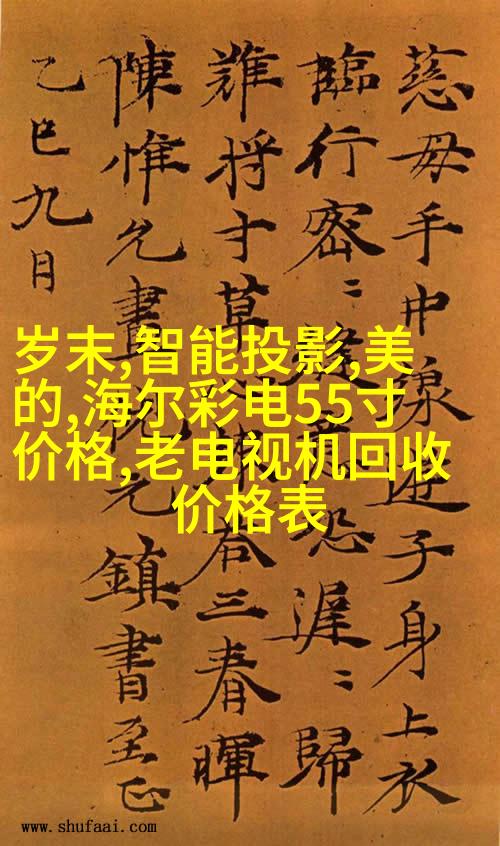 慈母手中線遊子身上衣
臨行密〻縫意恐遲〻歸
難将寸草報答三春暉
陳惟允書鎮書至正
乙巳九月
岁末,智能投影,美
的,海尔彩电55寸
价格,老电视机回收
价格表
www.shufaai.com